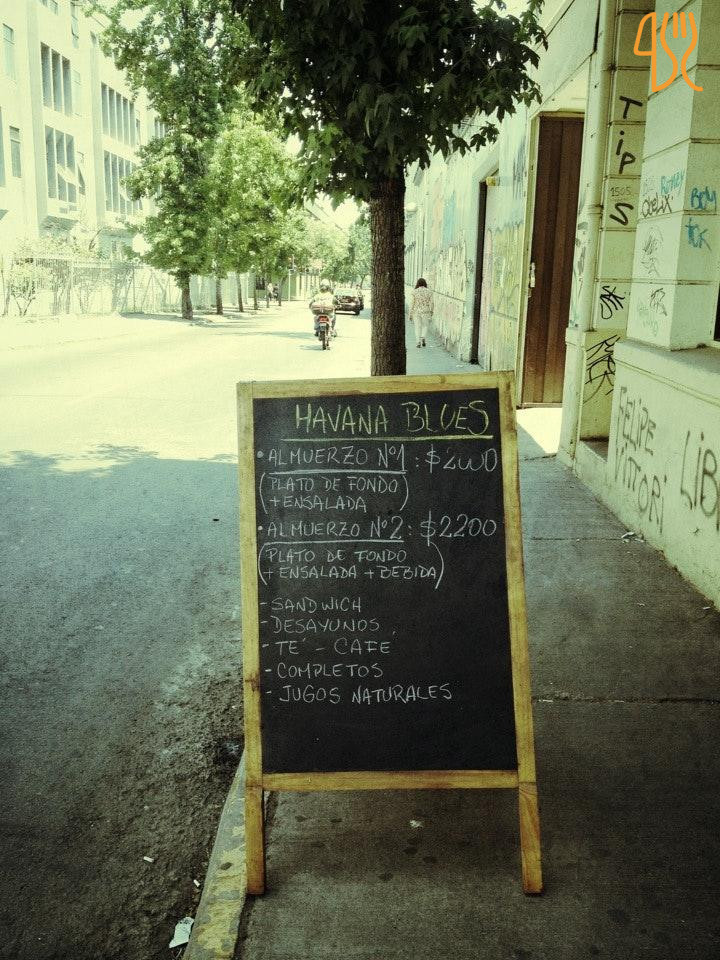 HAVANA BLUES
• ALMUERZO Nº1 : $2000
(PLATO DE FONDO
+ ENSALADA)
• ALMUERZO Nº2 : $2200
(PLATO DE FONDO
+ ENSALADA + BEBIDA)
- SANDWICH
- DESAYUNOS
- TÉ - CAFÉ
- COMPLETOS
- JUGOS NATURALES
TIPS
1505
FELIPE
VITTORI
LIB